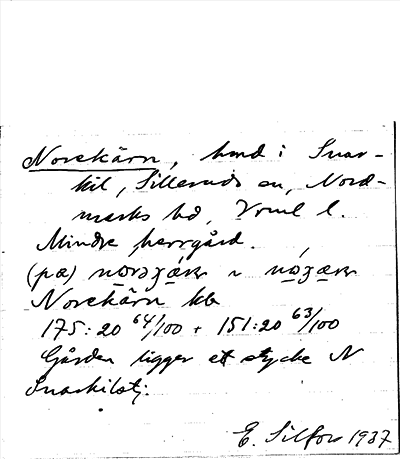 Norekärn, hmd i Snar-
kil, Silleruds sn, Nord-
marks hd, Vrml l.
Mindre herrgård.
(på)
Norekärn kb
175:20 64/100 + 151:20 63/100
Gården ligger ett stycke N
Snarkilstj.
E. Silfors 1937